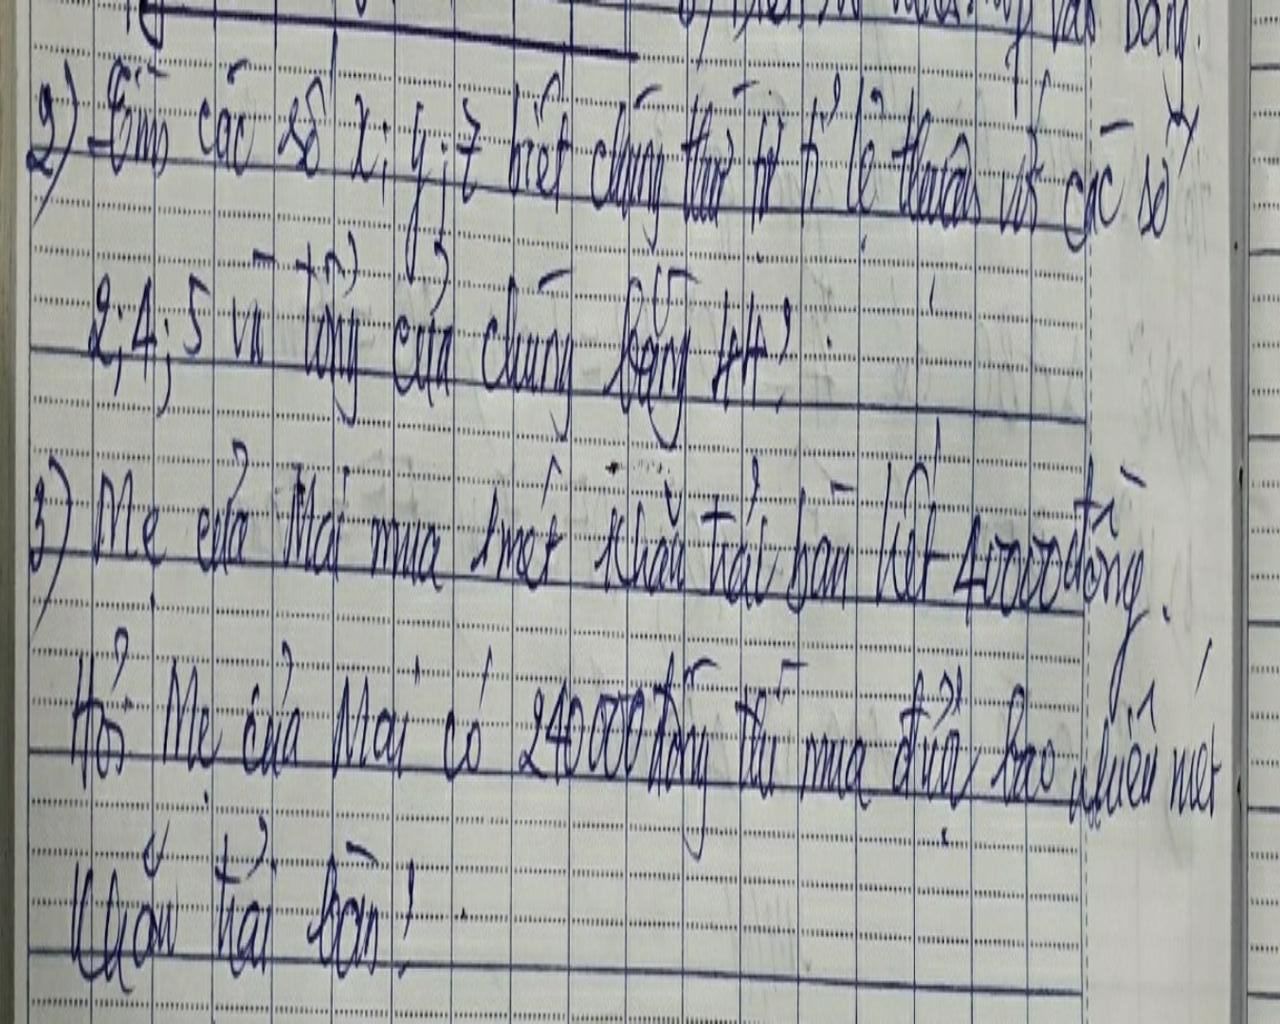 vào bảng.
2) Tìm các số x; y; z biết chúng thứ tự tỉ lệ thuận với các số
2; 4; 5 và tổng của chúng bằng 44?
3) Mẹ của Mai mua 1 mét khăn trải bàn hết 40000 đồng.
Hỏi Mẹ của Mai có 240000 đồng thì mua được bao nhiêu mét
khăn trải bàn?